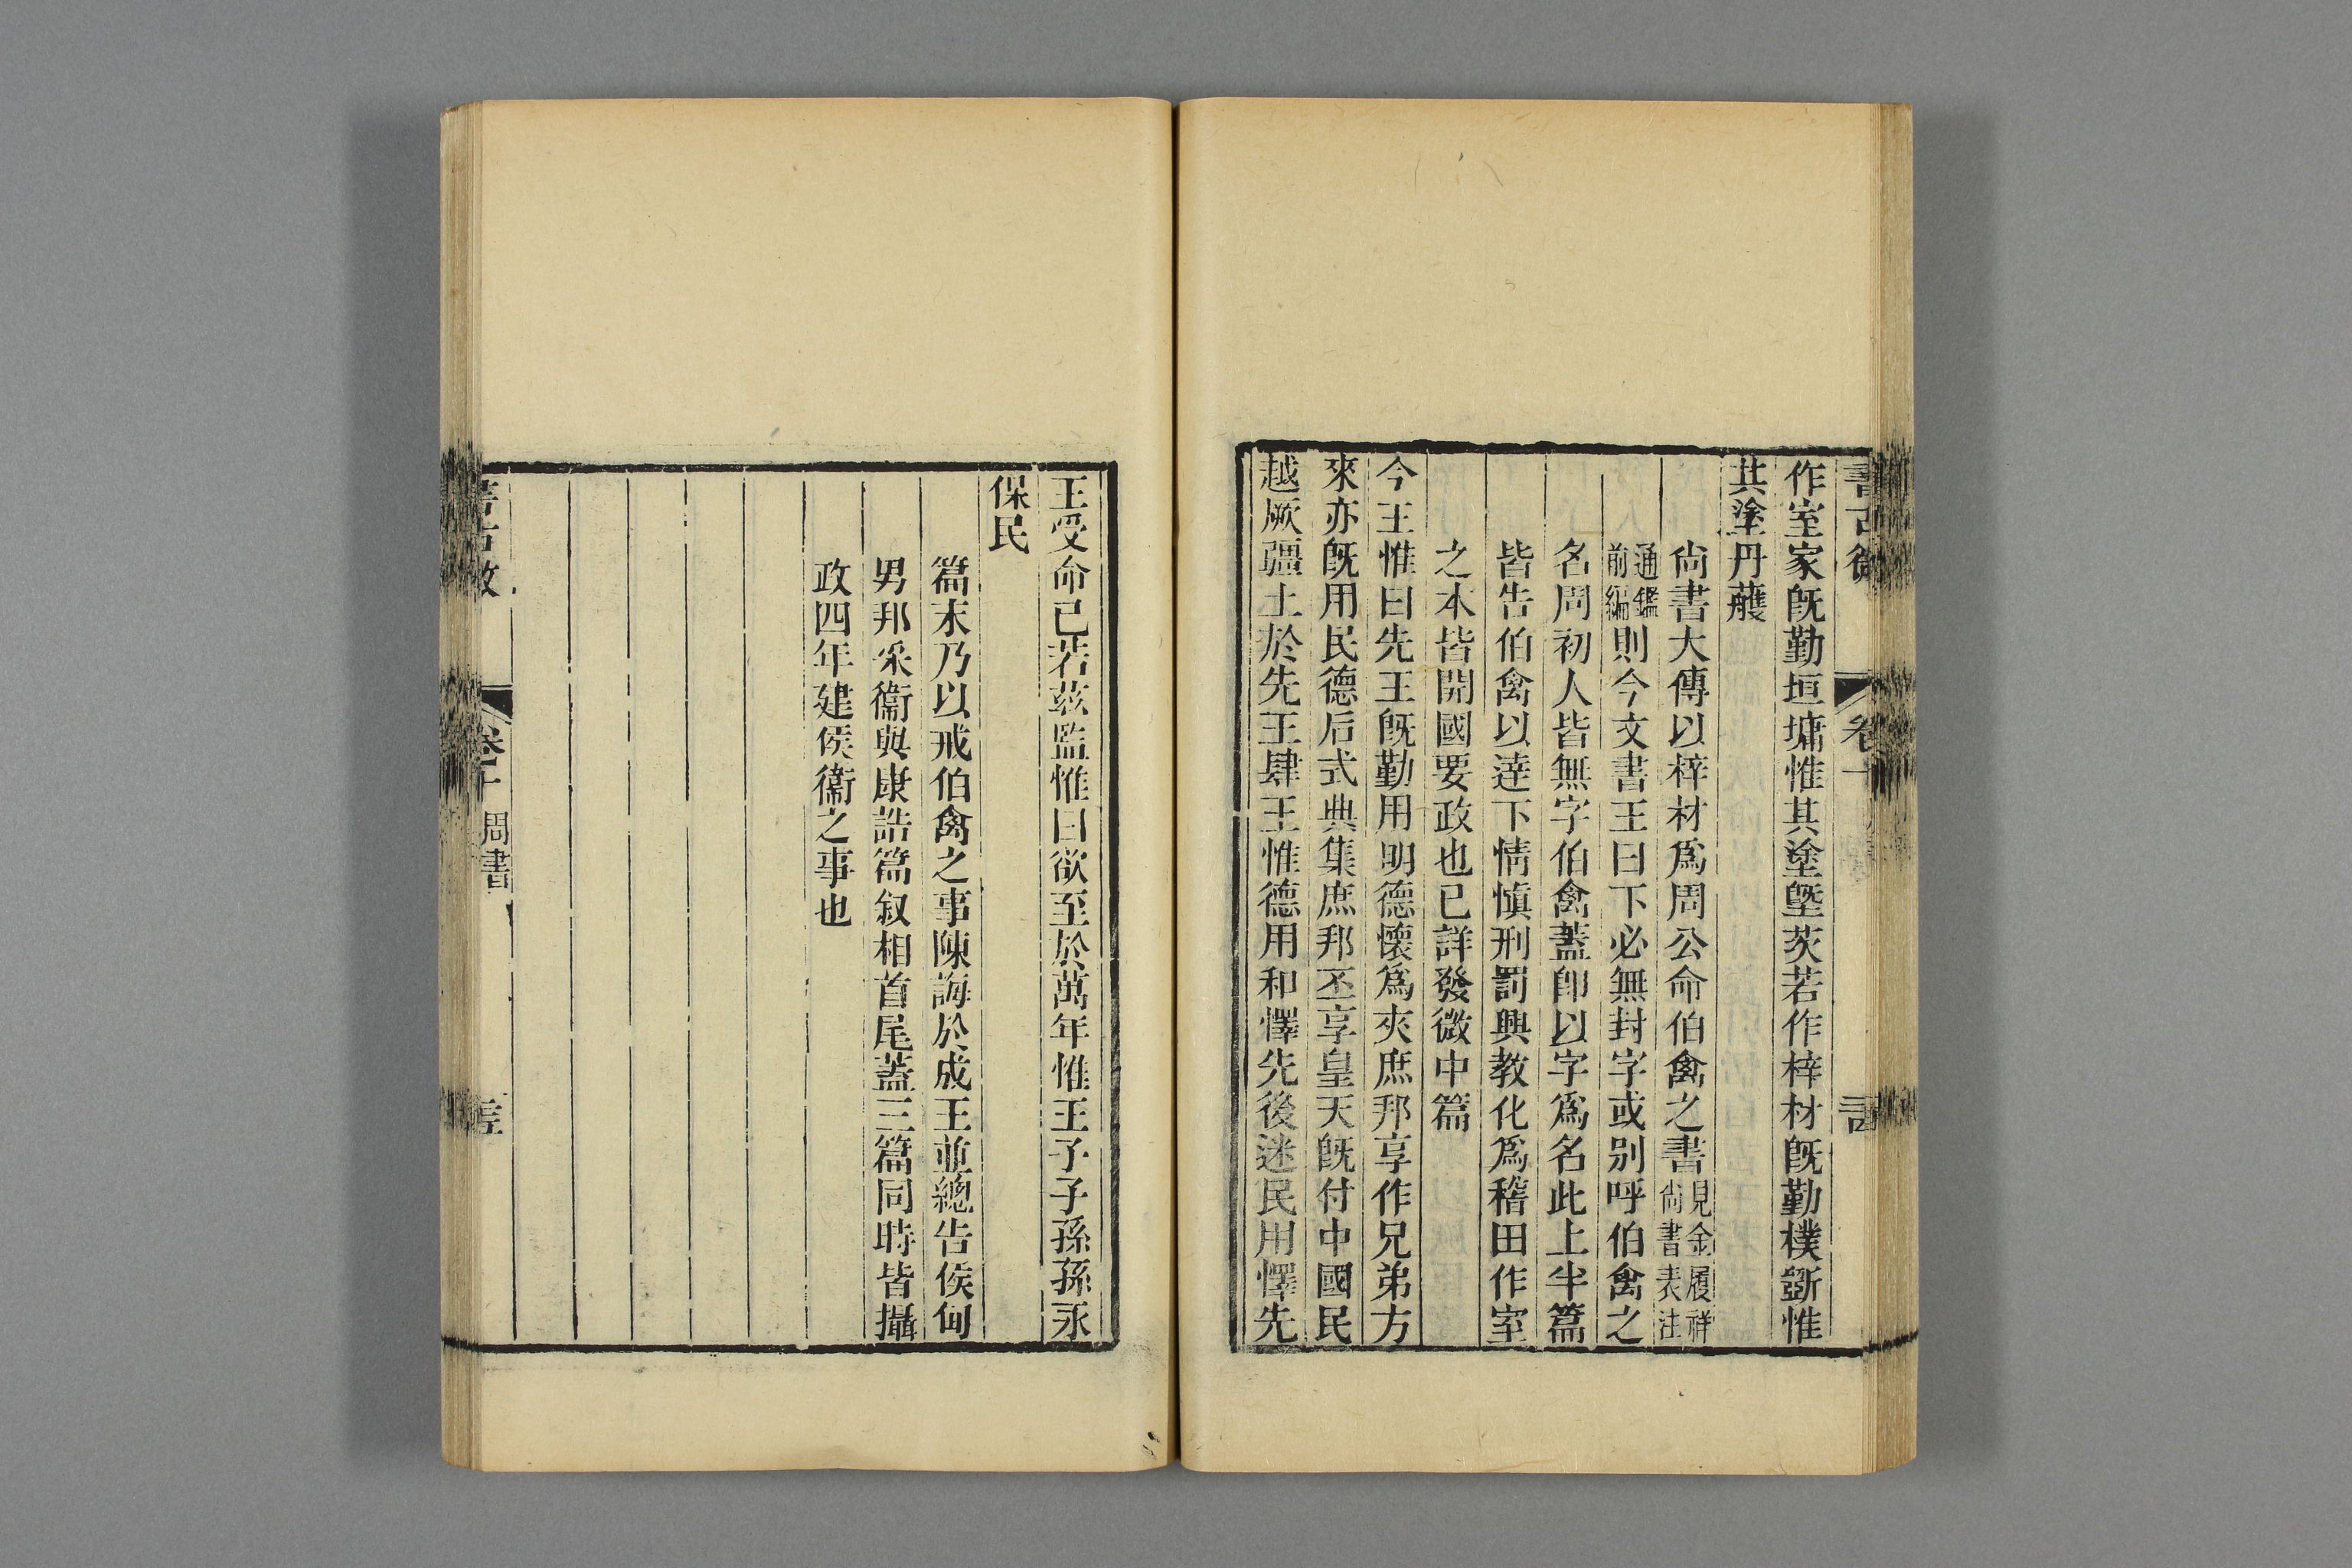 書古微 卷十
作室家旣勤垣墉惟其塗墍茨若作梓材旣勤樸斲惟
其塗丹雘
尙書大傳以梓材爲周公命伯禽之書見金履祥尙書表注
通鑑前編則今文書王曰下必無封字或別呼伯禽之
名周初人皆無字伯禽蓋卽以字爲名此上半篇
皆告伯禽以達下情愼刑罰興教化爲稽田作室
之本皆開國要政也已詳發微中篇
今王惟曰先王旣勤用明德懷爲夾庶邦享作兄弟方
來亦旣用民德后式典集庶邦丕享皇天旣付中國民
越厥疆土於先王肆王惟德用和懌先後迷民用懌先
王受命已若茲監惟曰欲至於萬年惟王子子孫孫永
保民
篇末乃以戒伯禽之事陳誨於成王並總告侯甸
男邦采衞與康誥篇叙相首尾蓋三篇同時皆攝
政四年建侯衞之事也
卷十 周書